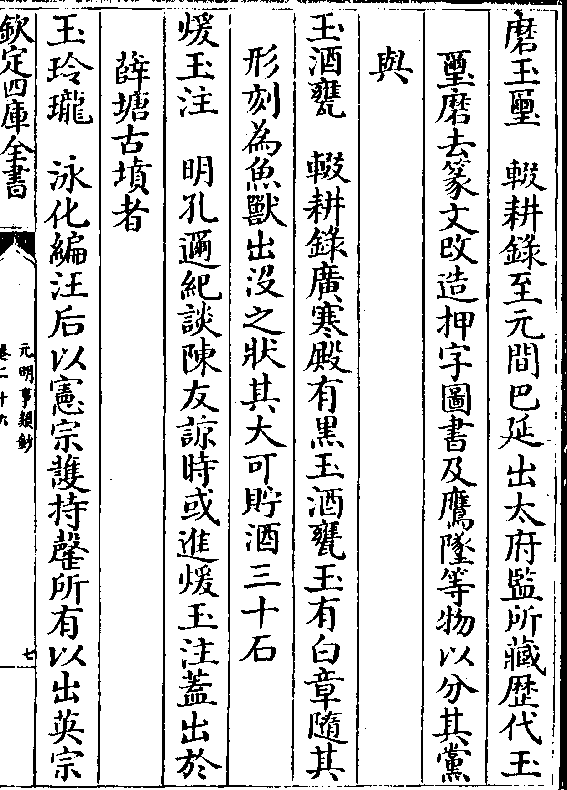 磨玉璽　輟耕錄至元間巴延出太府監所藏歷代玉
璽磨去篆文改造押字圖書及鷹墜等物以分其黨
與
玉酒甕　輟耕錄廣寒殿有黑玉酒甕玉有白章隨其
形刻為魚獸出沒之狀其大可貯酒三十石
煖玉注　明孔邇紀談陳友諒時或進煖玉注蓋出於
薛塘古墳者
玉玲瓏　泳化編汪后以憲宗護持罄所有以出英宗
欽定四庫全書
元明事類鈔
卷二十六
七